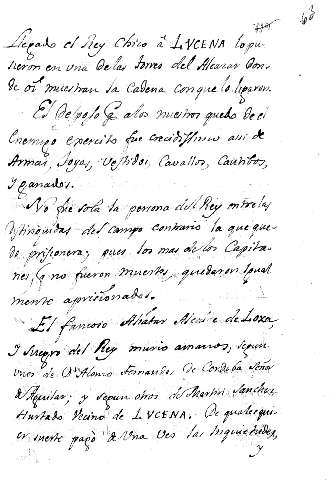 63
Llegado el Rey Chico â LVCENA lo pu-
sieron en una de las torres del Alcazar don-
de oi muestran la Cadena con que lo ligaron.
El despojo q̃ a los nuestros quedo de el
Enemigo exercito fue crecidissimo assi de
Armas, Joyas, Vestidos, Cavallos, Cautibos,
y ganados.
No fue sola la persona del Rey entre las
distinguidas del campo contrario la que que-
do prisionera; pues los mas de los Capita-
nes, q̃ no fueron muertos, quedaron igual
mente aprisionados.
El famoso Alhatar Alcaide de Loxa,
y suegro del Rey murio a manos, segun
unos de Dn Alonso Fernandes de Cordoba Señor
de Aguilar; y segun otros de Martin Sanchez
Hurtado Vecino de LVCENA. De qualesqui-
er suerte pagò de Una Ves las inquietudes,
y